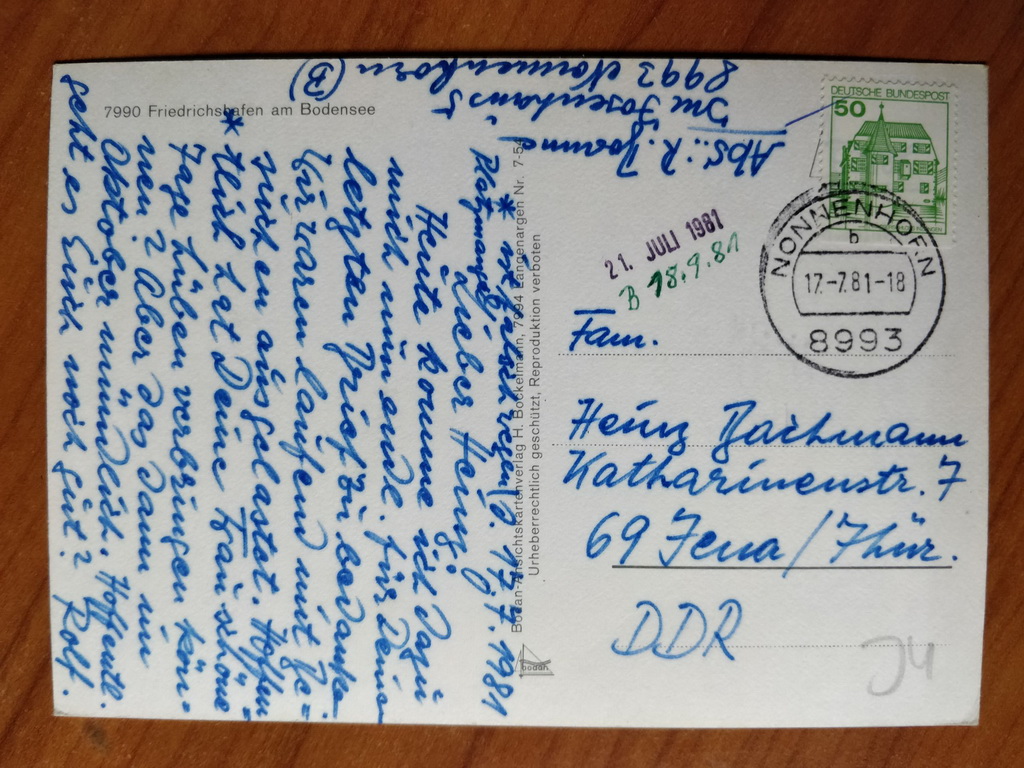 7990 Friedrichshafen am Bodensee
Abs.: R.
Im Josenhaus 5
8993 Nonnenhorn (B)
DEUTSCHE BUNDESPOST
50
NONNENHORN
b
17.-7.81-18
8993
21. JULI 1981
B 18.9.81
Fam.
Heinz Bachmann
Katharinenstr. 7
69 Jena/Thür.
DDR
J4
Bodan-Ansichtskartenverlag H. Bockelmann, 7994 Langenargen Nr. 7-54
Urheberrechtlich geschützt, Reproduktion verboten
bodan
geschrieben) d. 17.7.1981
Lieber Heinz!
Heute komme ich dazu
mich nun endl. für Deine
letzten Brief zu bedanke.
Wir waren laufend mit Be=
suchen ausgelastet. Hoffen=
*tlich hat Deine Frau schöne
Tage drüben verbringen kön=
nen? Aber das dann im
Oktober mündlich. Hoffentl.
geht es Euch noch gut? Rolf.